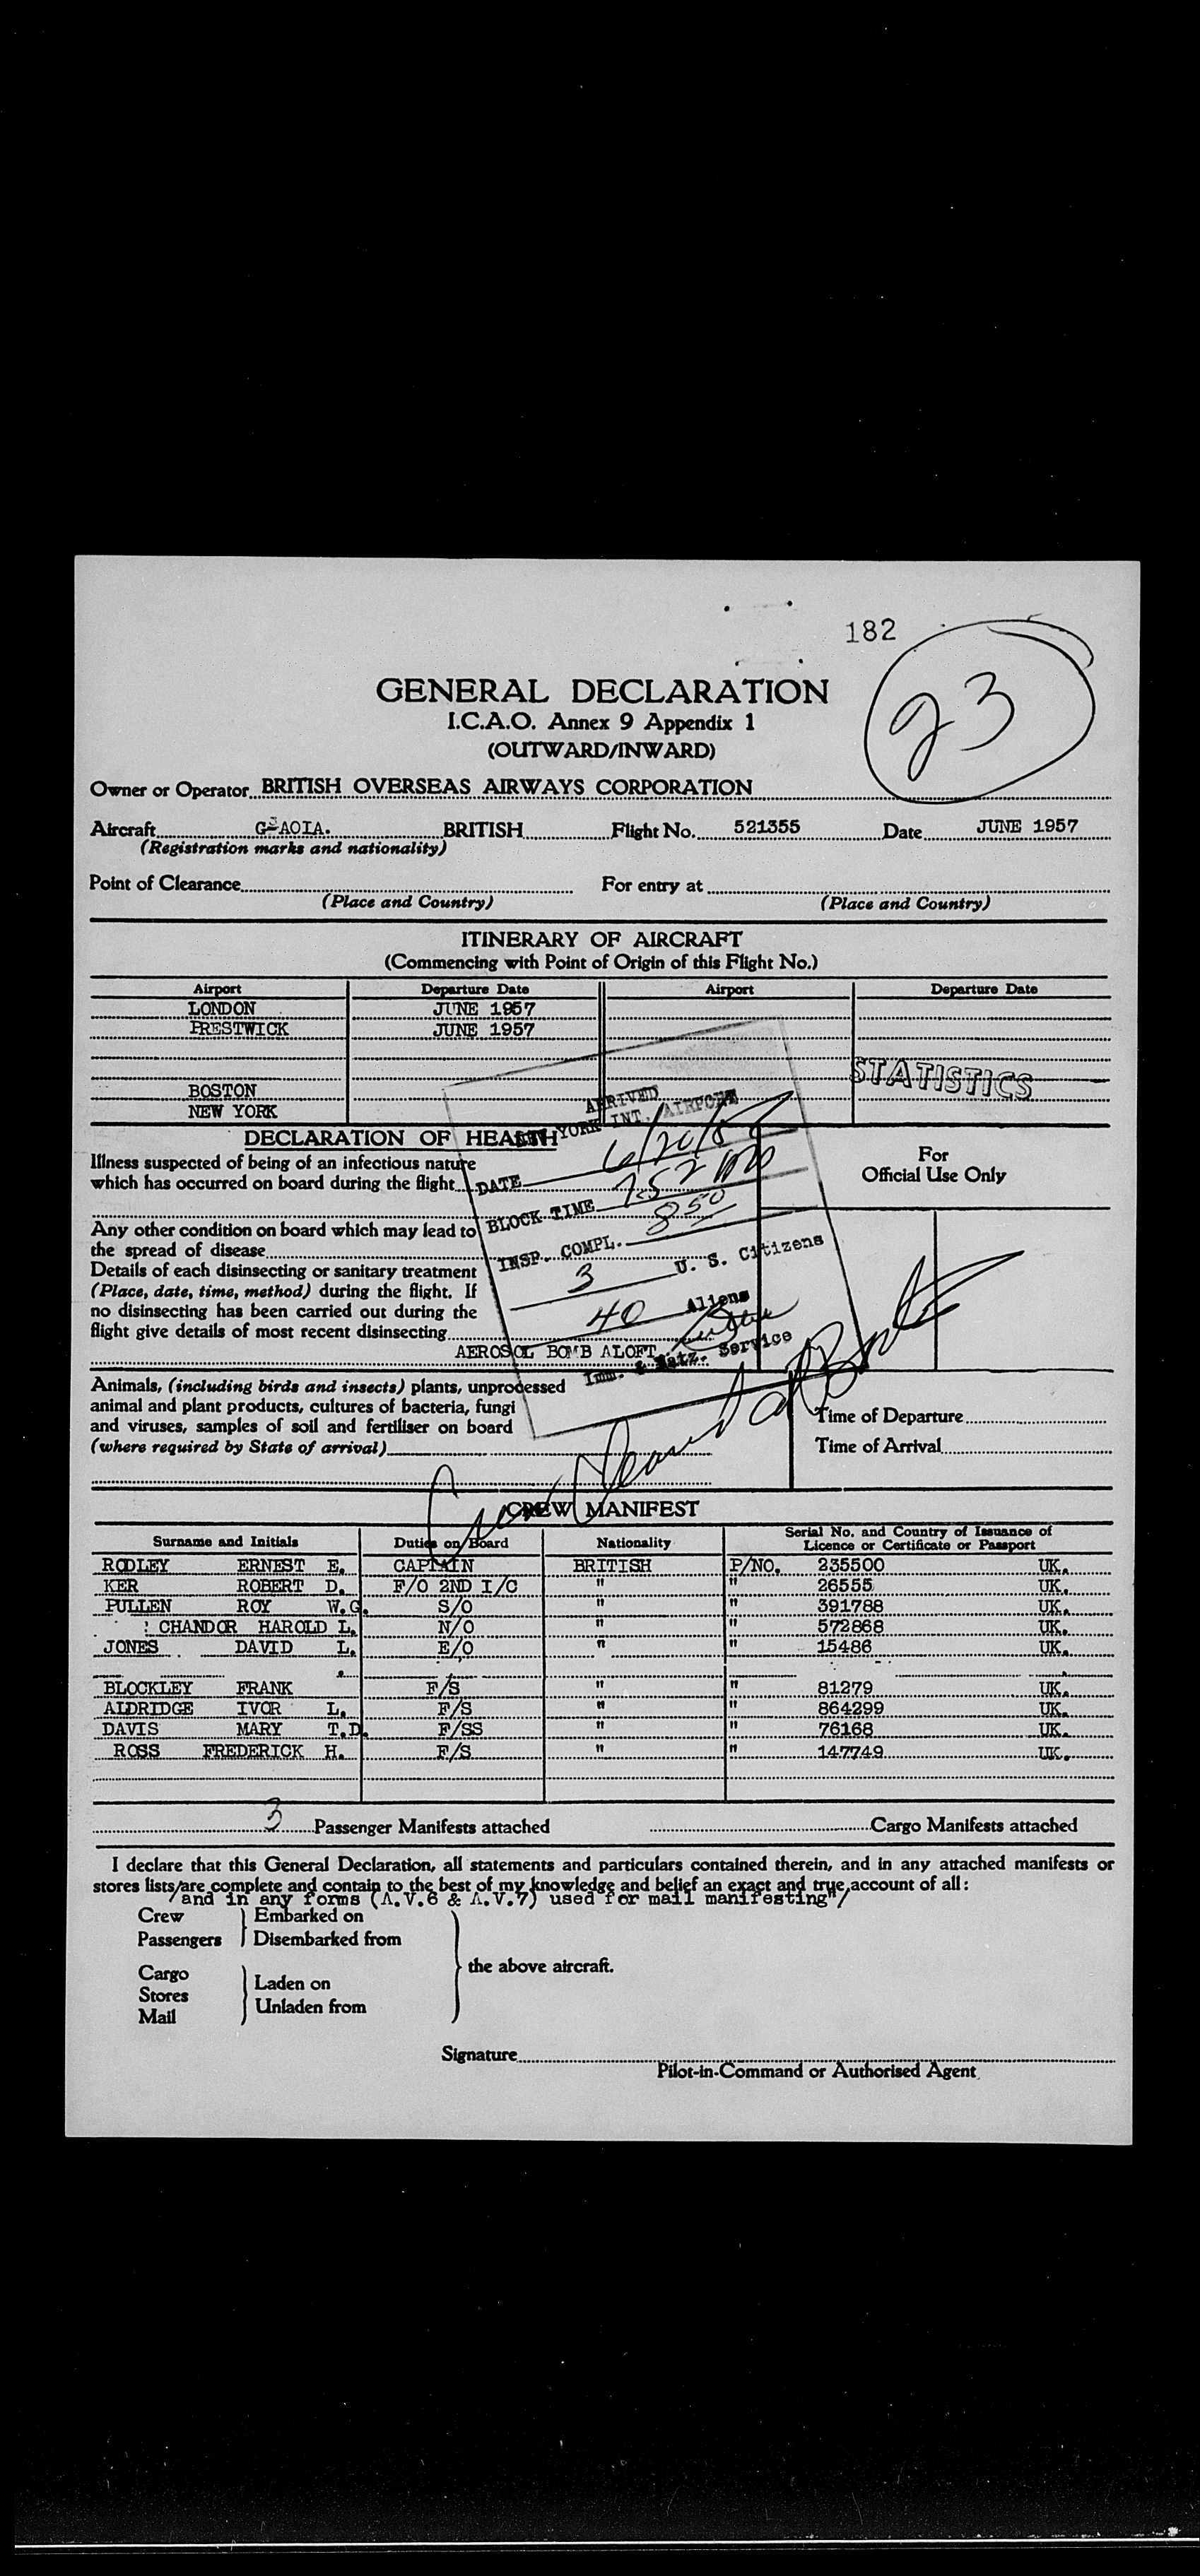 182
23
GENERAL DECLARATION
I.C.A.O. Annex 9 Appendix 1
(OUTWARD/INWARD)
Owner or Operator BRITISH OVERSEAS AIRWAYS CORPORATION
Aircraft G-AOIA. BRITISH Flight No. 521355 Date JUNE 1957
(Registration marks and nationality)
Point of Clearance For entry at
(Place and Country) (Place and Country)
ITINERARY OF AIRCRAFT
(Commencing with Point of Origin of this Flight No.)
Airport Departure Date Airport Departure Date
LONDON JUNE 1957
PRESTWICK JUNE 1957
STATISTICS
BOSTON
NEW YORK
ARRIVED
NEW YORK INT. AIRPORT
DATE 6/20/57
BLOCK TIME 752
INSP. COMPL. 850
3 U. S. Citizens
40 Aliens
Imm. & Natz. Service
DECLARATION OF HEALTH
Illness suspected of being of an infectious nature
which has occurred on board during the flight
For
Official Use Only
Any other condition on board which may lead to
the spread of disease
Details of each disinsecting or sanitary treatment
(Place, date, time, method) during the flight. If
no disinsecting has been carried out during the
flight give details of most recent disinsecting
AEROSOL BOMB ALOFT
Animals, (including birds and insects) plants, unprocessed
animal and plant products, cultures of bacteria, fungi
and viruses, samples of soil and fertiliser on board
(where required by State of arrival)
Time of Departure
Time of Arrival
Crew Cleared at Boston
CREW MANIFEST
Surname and Initials Duties on Board Nationality Serial No. and Country of Issuance of
Licence or Certificate or Passport
RODLEY ERNEST E. CAPTAIN BRITISH P/NO. 235500 UK.
KER ROBERT D. F/O 2ND I/C " " 26555 UK.
PULLEN ROY W.G. S/O " " 391788 UK.
CHANDOR HAROLD L. N/O " " 572868 UK.
JONES DAVID L. E/O " " 15486 UK.
BLOCKLEY FRANK F/S " " 81279 UK.
ALDRIDGE IVOR L. F/S " " 864299 UK.
DAVIS MARY T.D. F/SS " " 76168 UK.
ROSS FREDERICK H. F/S " " 147749 UK.
3 Passenger Manifests attached Cargo Manifests attached
I declare that this General Declaration, all statements and particulars contained therein, and in any attached manifests or
stores lists/are complete and contain to the best of my knowledge and belief an exact and true account of all:
/and in any forms (A.V.6 & A.V.7) used for mail manifesting"/
Crew Embarked on
Passengers Disembarked from
the above aircraft.
Cargo
Stores Laden on
Mail Unladen from
Signature
Pilot-in-Command or Authorised Agent